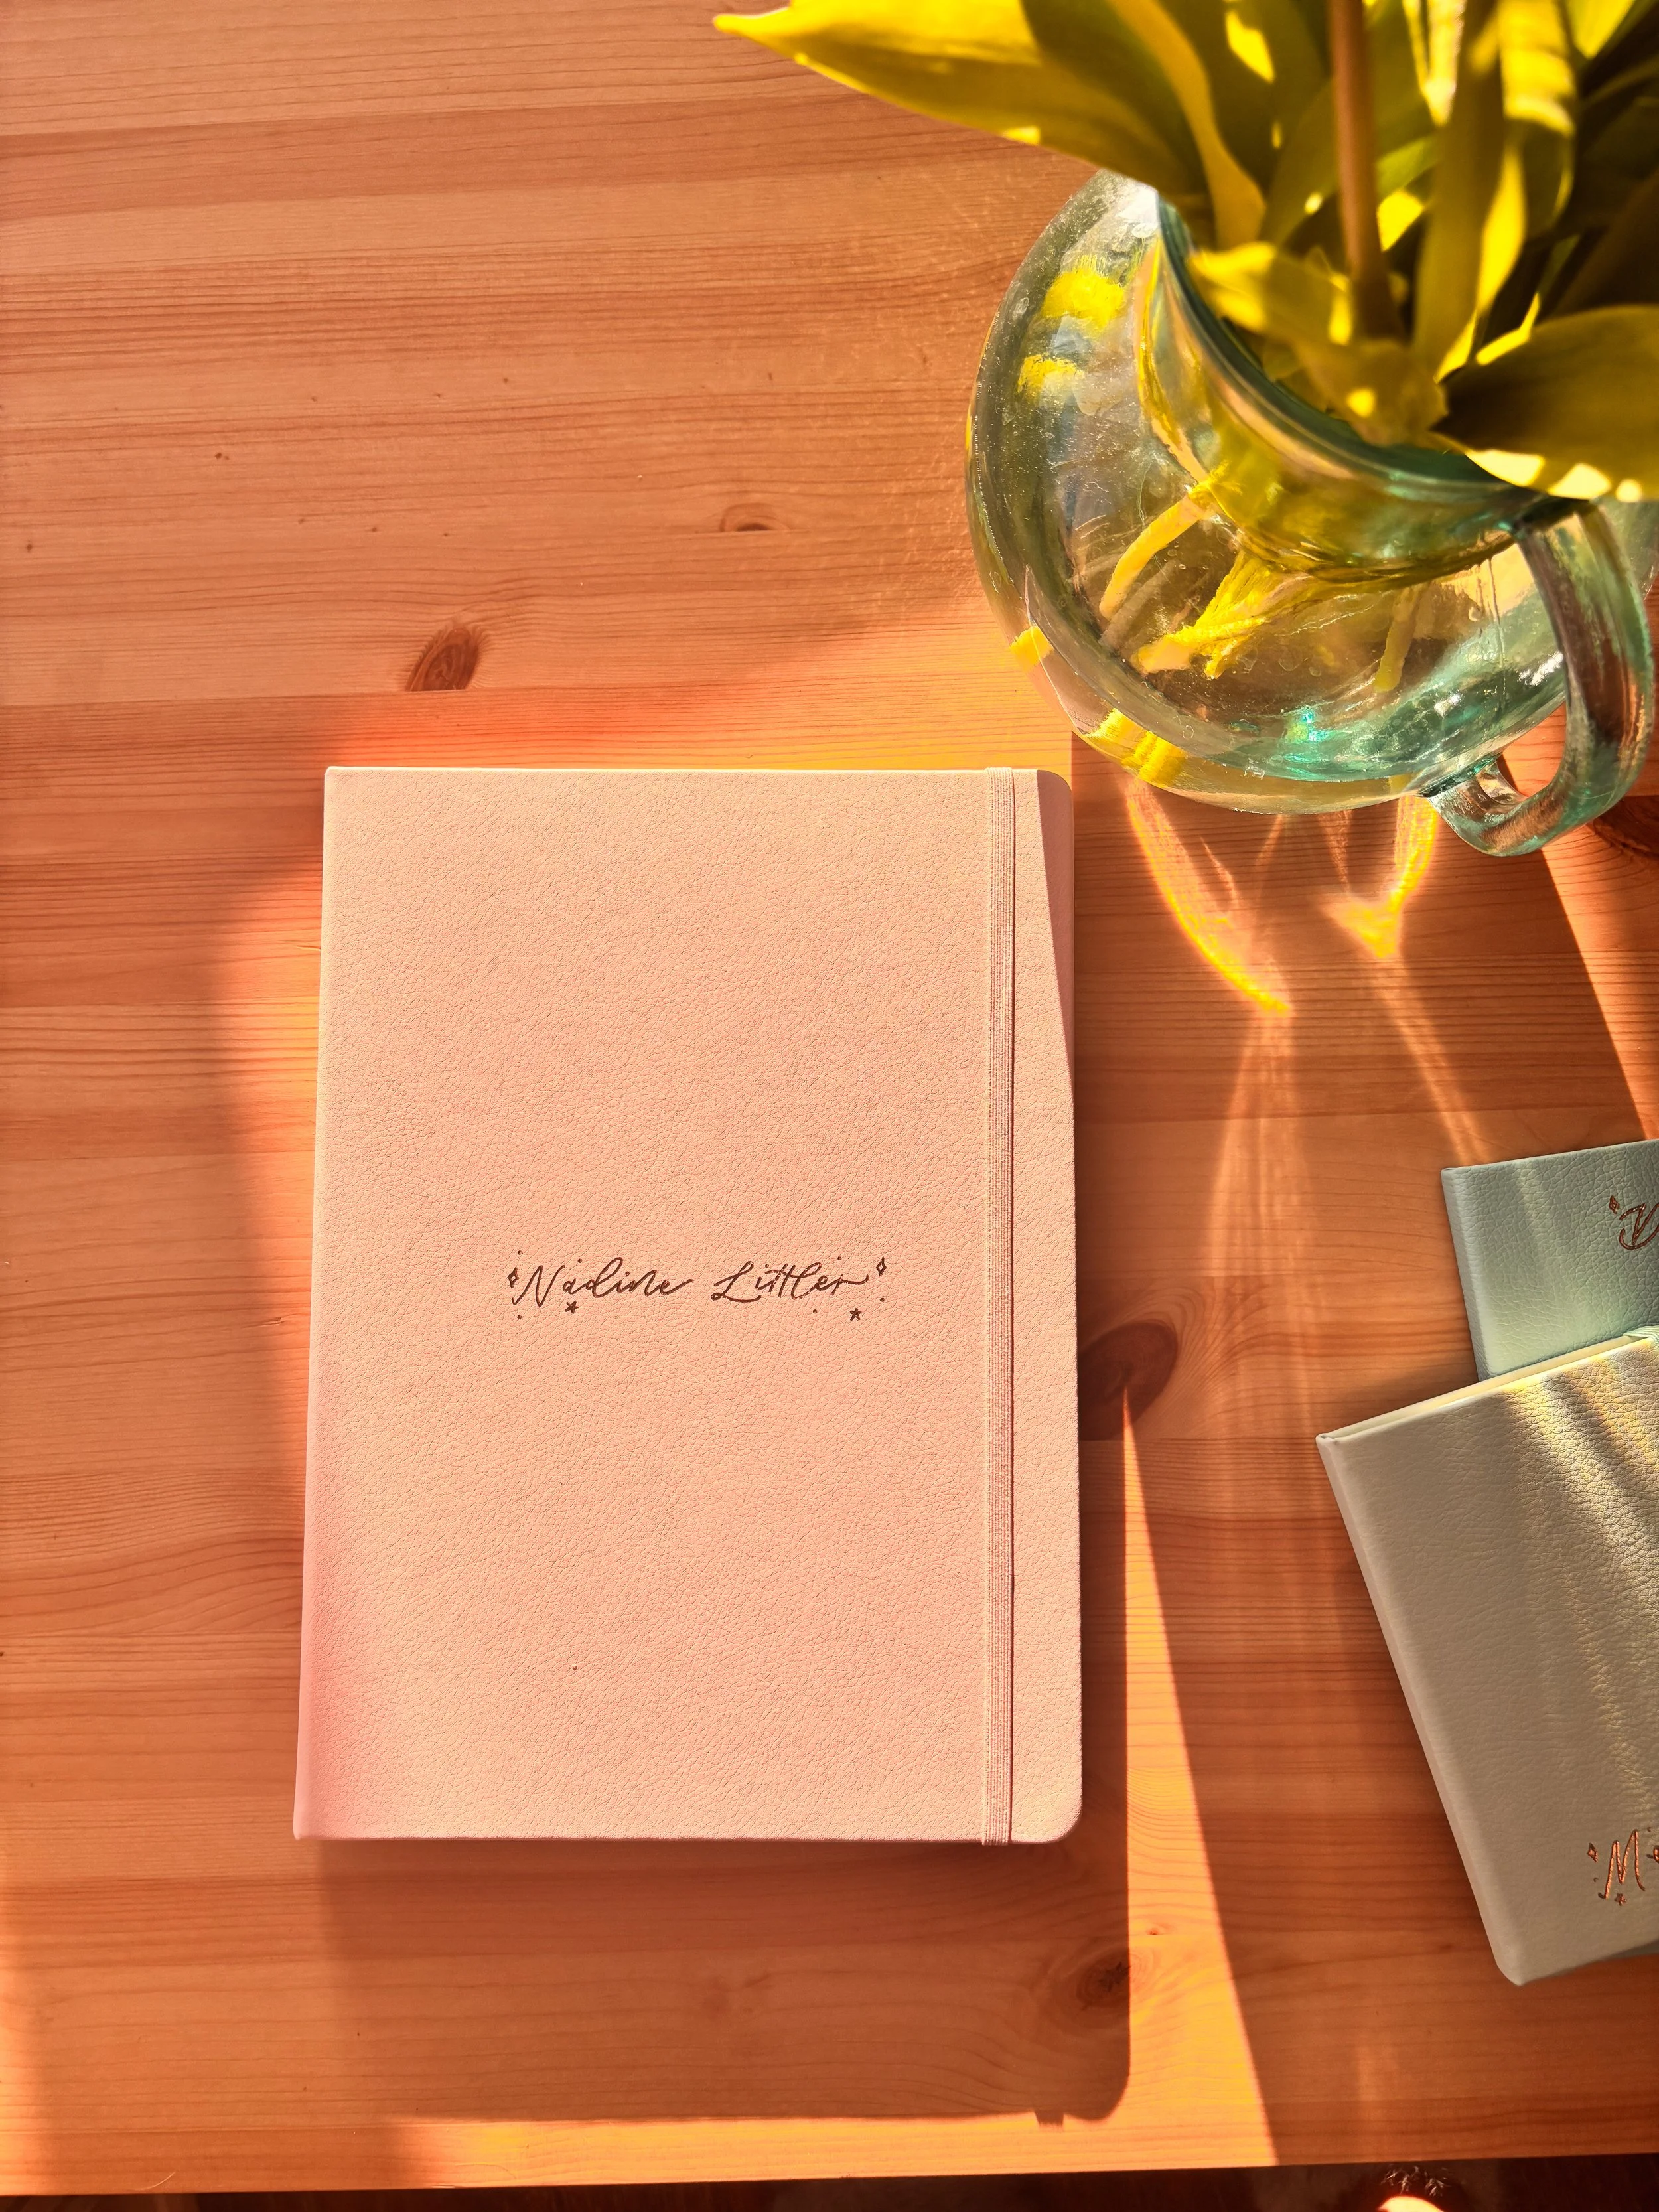 Nadine Littler